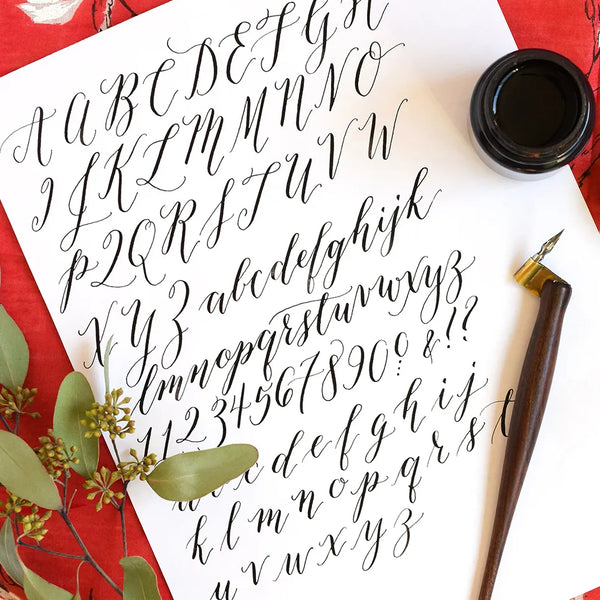 A A B C D E F G H
I J K L M M N N O
P Q Q R S T U V W
X Y Z abcdefghijk
lmnopqrstuvwxyz
11234567890 & !?
c d e f g h i j
k l m n o p q r s t
u v w x y z